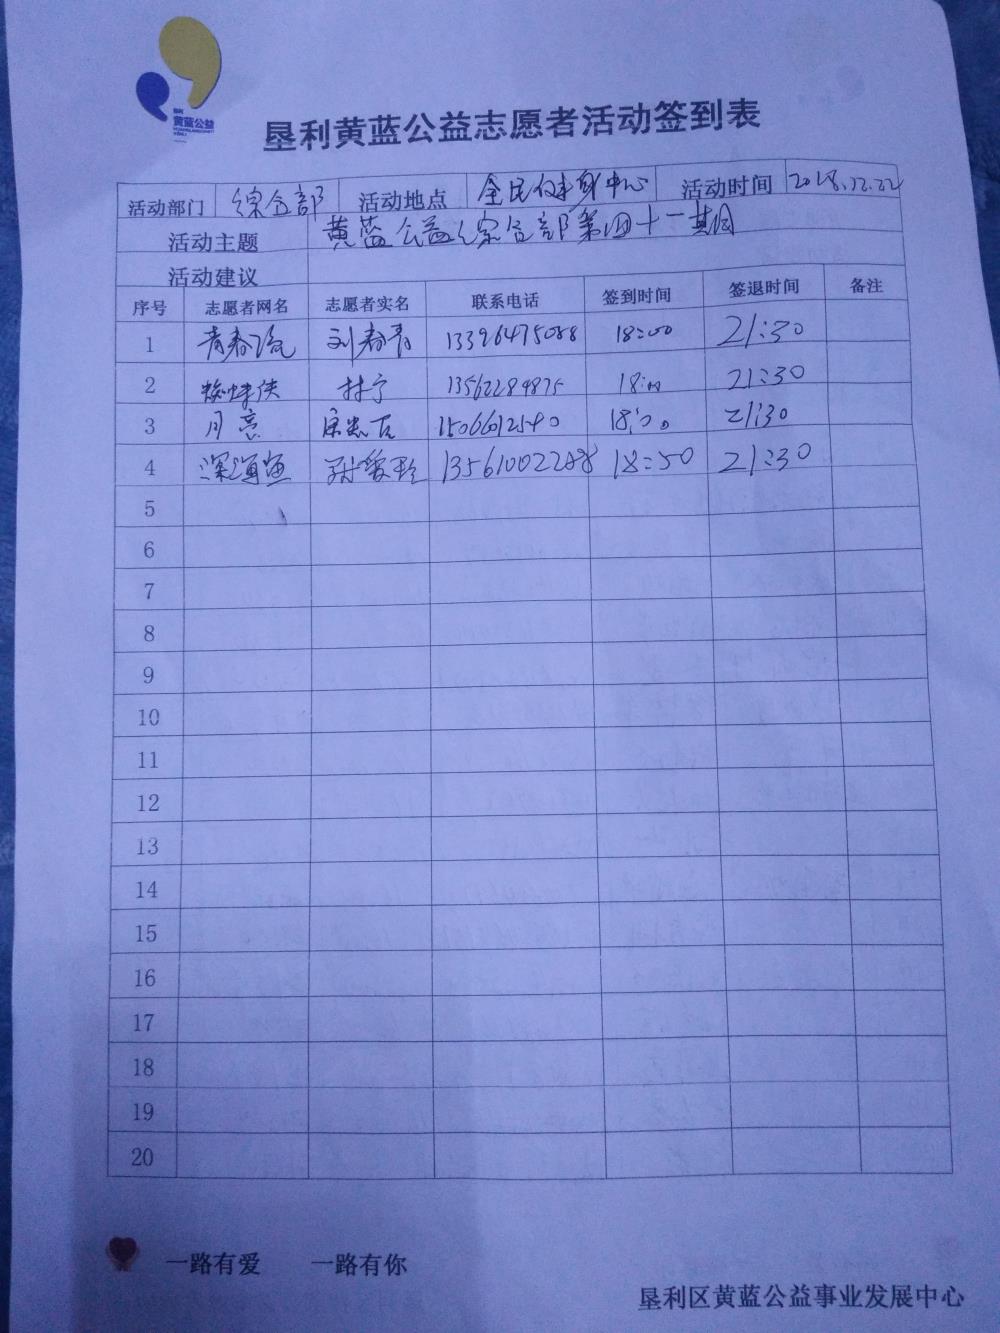 垦利
黄蓝公益
垦利黄蓝公益志愿者活动签到表
活动部门 综合部 活动地点 全民健身中心 活动时间 2018.12.22
活动主题 黄蓝公益综合部第四十一期
活动建议
序号 志愿者网名 志愿者实名 联系电话 签到时间 签退时间 备注
1 青春 刘春青 13396475088 18:00 21:30
2 蜘蛛侠 林宁 13562284875 18:00 21:30
3 月亮 15066012540 18:00 21:30
4 深海鱼 13561002288 18:50 21:30
5
6
7
8
9
10
11
12
13
14
15
16
17
18
19
20
一路有爱 一路有你
垦利区黄蓝公益事业发展中心